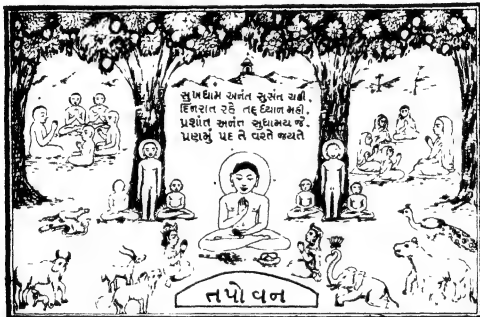 સુખધામ અનંત સુસંત ચહી,
દિનરાત રહે તદ્દ ધ્યાન મહીં,
પ્રશાંત અનંત સુધામય જે,
પ્રણમું પદ તે વરતે જયતે
તપોવન